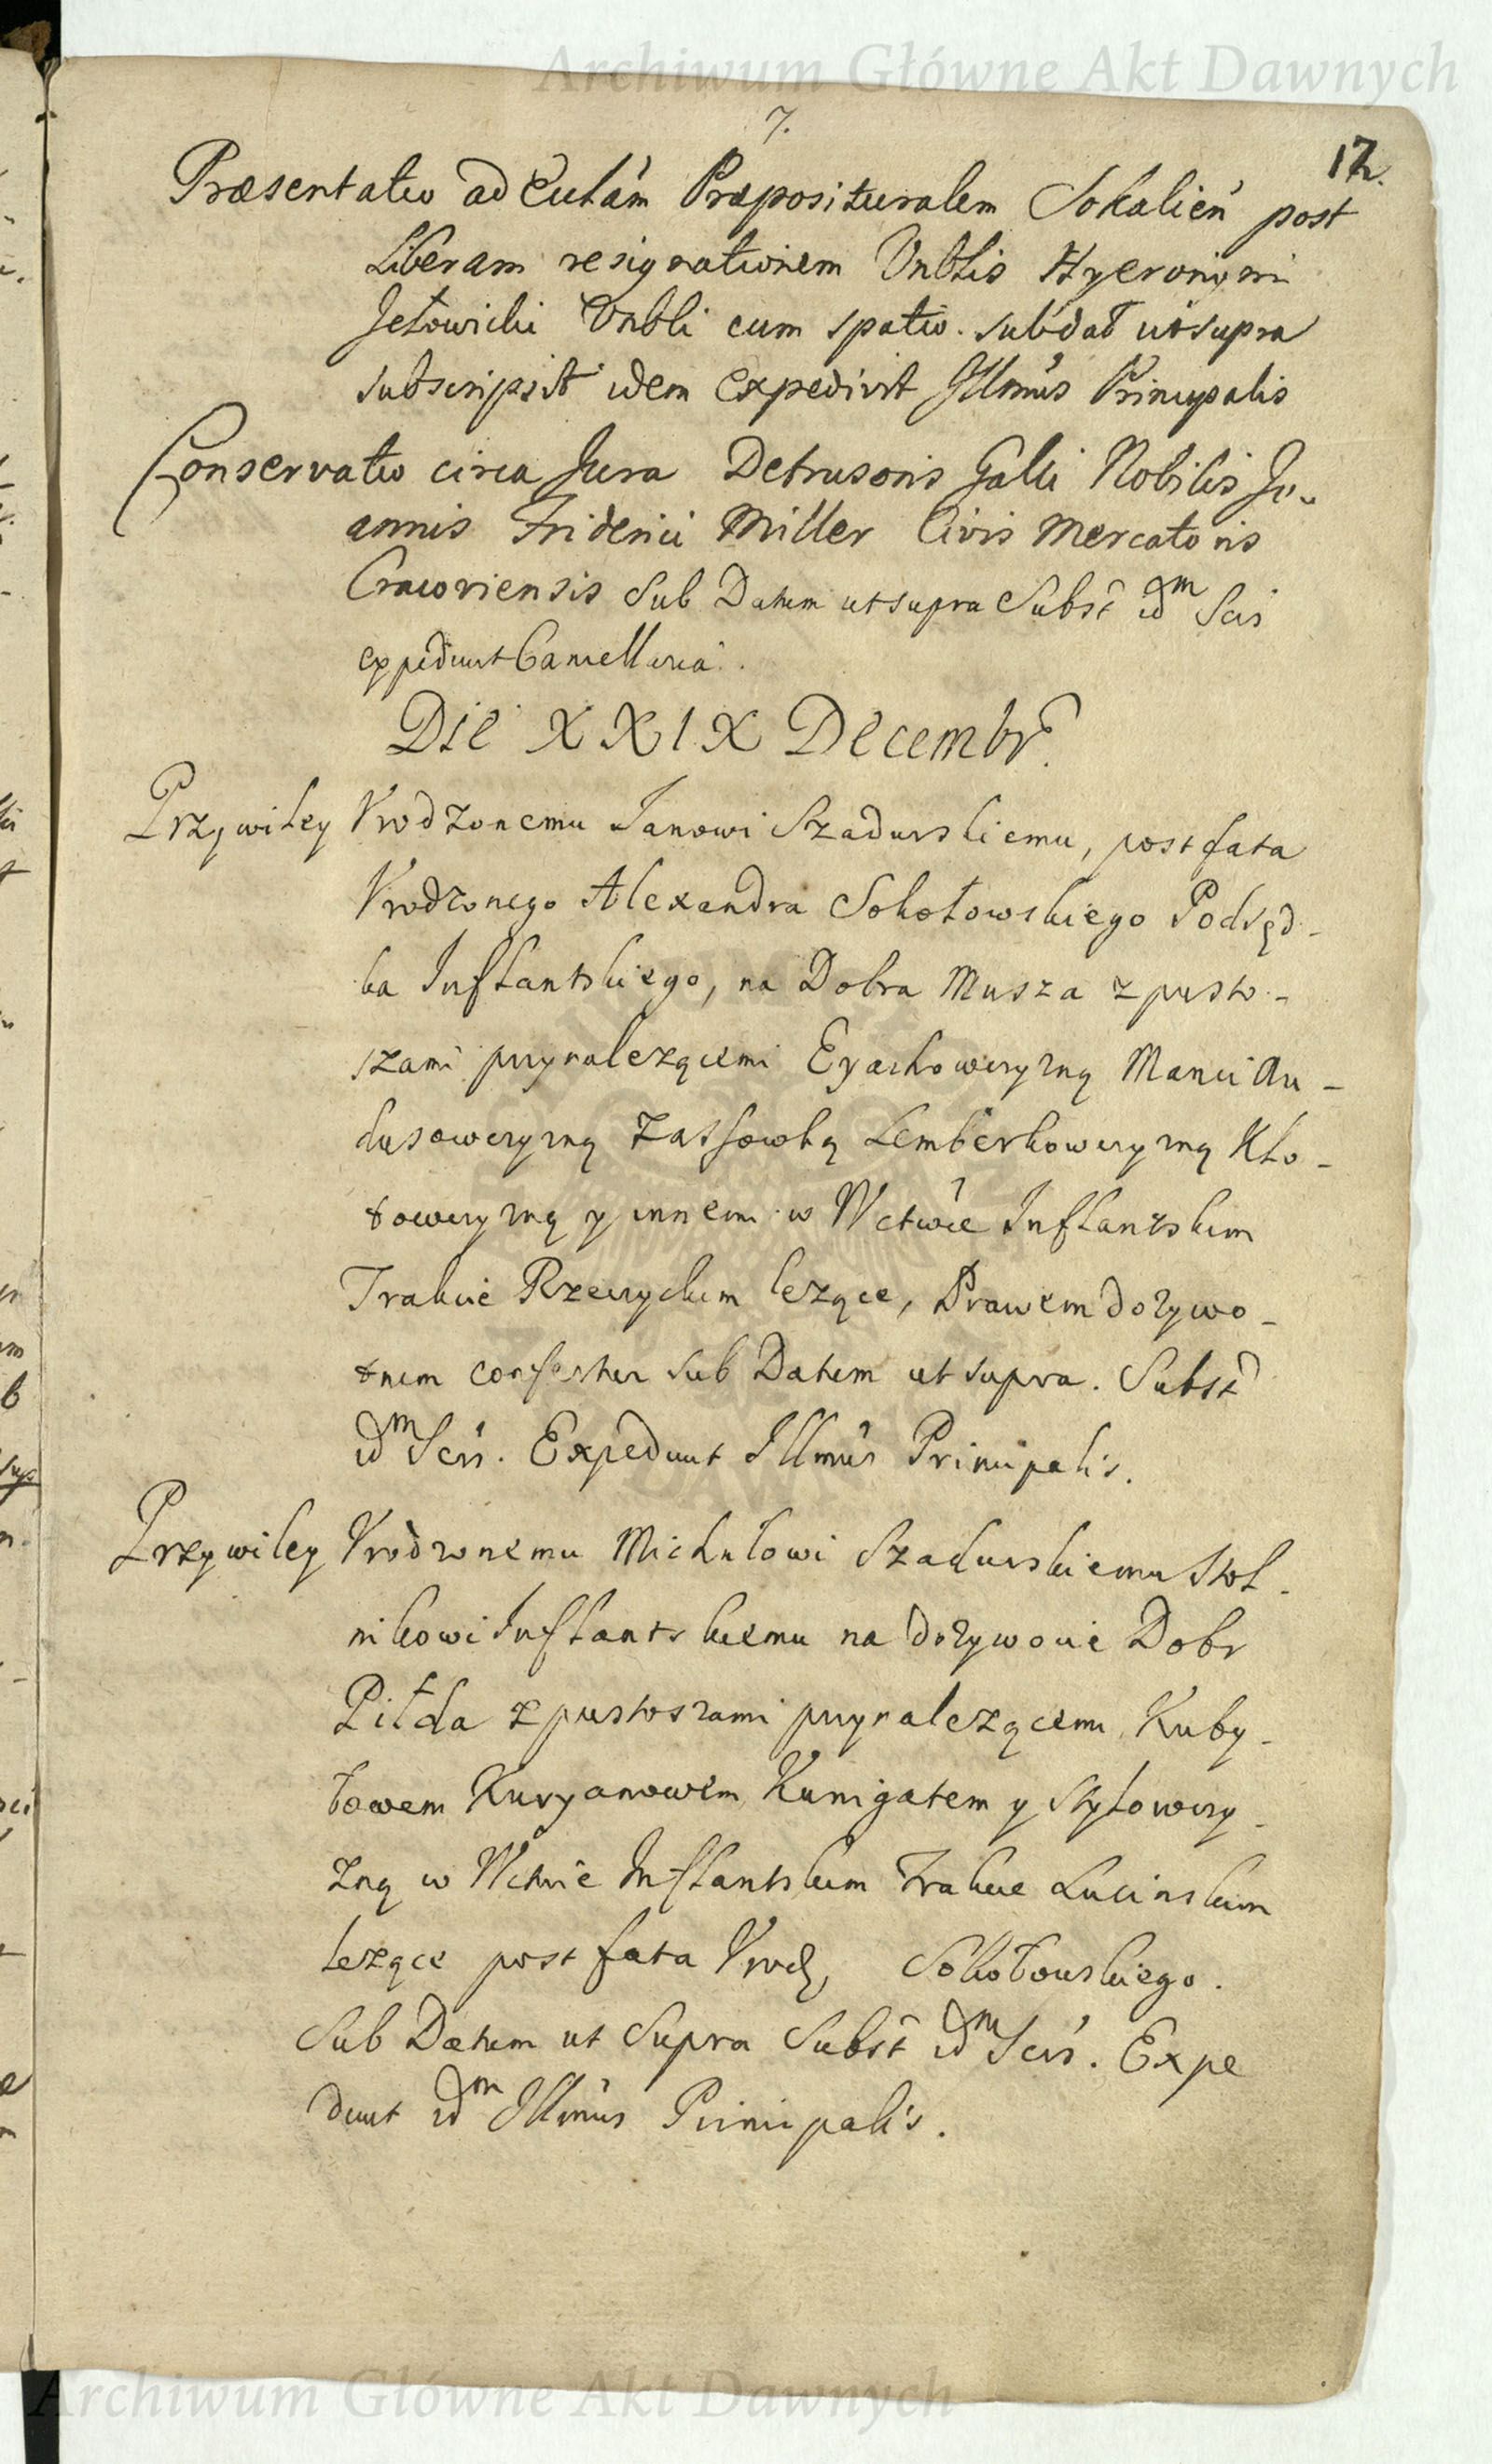 Archiwum Główne Akt Dawnych
7.
12.
Præsentatio ad Eccłam Præposituralem Sokalień post
Liberam resignationem Vnblis Hyeronymi
Jełowicki Vnbli cum spatio. sub dat ut supra
subscripsit idem Expedivit Illmus Principalis
Conservatio circa Jura Detrusoris Galli Nobilis Jo-
annis Friderici Miller Civis Mercatoris
Cracoviensis Sub Datum ut supra Subst idm Scis
expediunt Cancellaria.
Die XXIX Decembr.
Przywiley Vrodzonemu Janowi Szadurskiemu, post fata
Vrodzonego Alexandra Sokołowskiego Podsęd-
ka Inflantskiego, na Dobra Musza z pusto-
szami przynalezącemi Eyachowczyzną
Zassowką Lemberkowczyzną Kło-
towczyzną y innemi w Wctwie Inflantskim
Trakcie Rzeczyckim lezące, Prawem dozywo-
tnim confertur sub Datum ut supra. Subst
idm Scis. Expediunt Illmus Principalis.
Przywiley Vrodzonemu Michałowi Szadurskiemu Stol-
nikowi Inflantskiemu na dozywocie Dobr
Piłda z pustoszami przynalezącemi Kuby-
łowem Kuryanowem Kunigatem y Stylowczy-
zną w Wctwie Inflantskim Trakcie Lucinskim
lezące post fata Vrodz, Sokołowskiego.
Sub Datum ut Supra Subst idm Scis. Expe
diunt idm Illmus Principalis.
Archiwum Główne Akt Dawnych